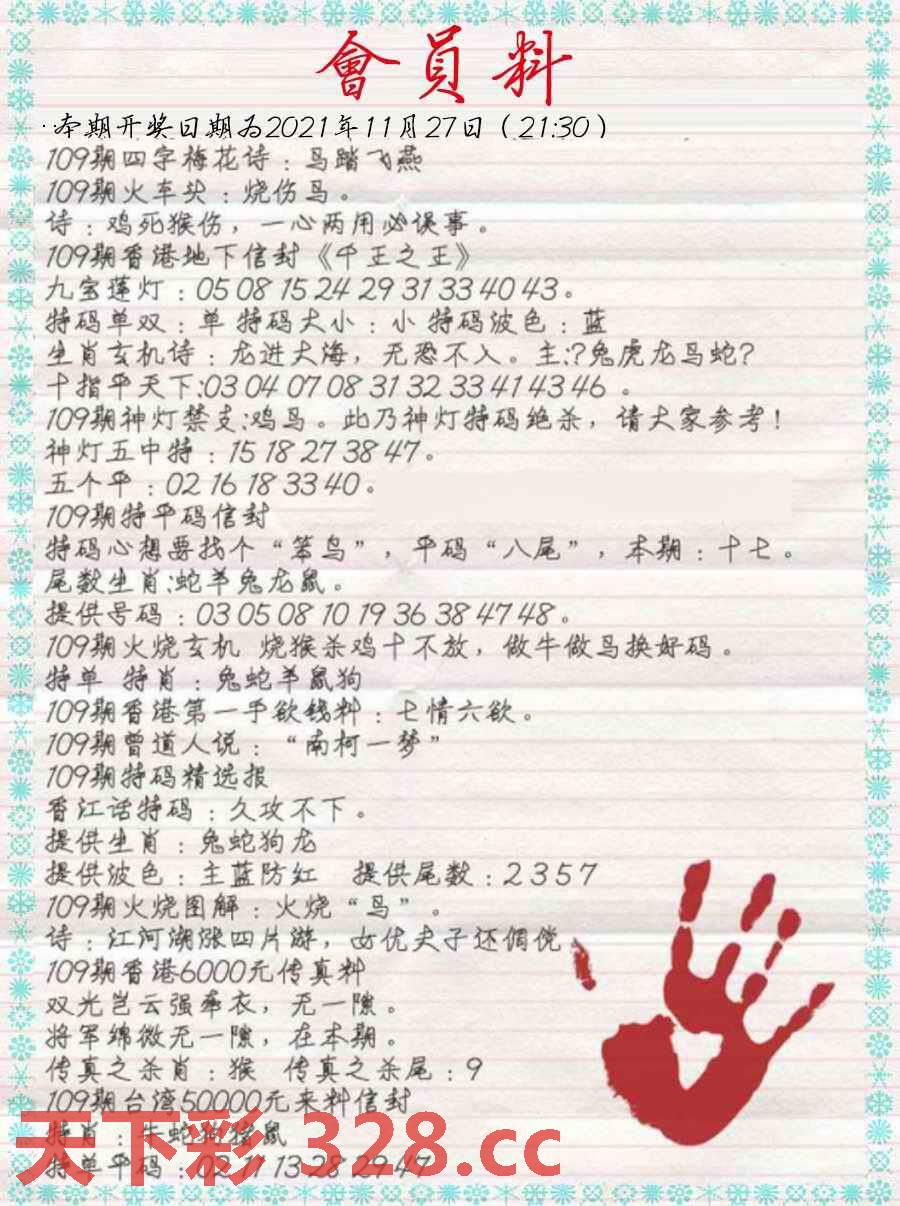 會員料
·本期开奖日期为2021年11月27日（21:30）
109期四字梅花诗：马踏飞燕
109期火车头：烧伤马。
诗：鸡死猴伤，一心两用必误事。
109期香港地下信封《千王之王》
九宝莲灯：05 08 15 24 29 31 33 40 43。
特码单双：单 特码大小：小 特码波色：蓝
生肖玄机诗：龙进大海，无恐不入。主:?兔虎龙马蛇?
十指平天下:03 04 07 08 31 32 33 41 43 46 。
109期神灯禁支:鸡马。此乃神灯特码绝杀，请大家参考！
神灯五中特：15 18 27 38 47。
五个平：02 16 18 33 40。
109期特平码信封
特码心想要找个“笨鸟”，平码“八尾”，本期：十七。
尾数生肖:蛇羊兔龙鼠。
提供号码：03 05 08 10 19 36 38 47 48。
109期火烧玄机 烧猴杀鸡十不放，做牛做马换好码。
特单 特肖：兔蛇羊鼠狗
109期香港第一手欲钱料：七情六欲。
109期曾道人说：“南柯一梦”
109期特码精选报
香江话特码：久攻不下。
提供生肖：兔蛇狗龙
提供波色：主蓝防红 提供尾数：2 3 5 7
109期火烧图解：火烧“鸟”。
诗：江河湖涨四片游，女优夫子还倜傥。
109期香港6000元传真料
双光岂云强牵衣，无一隙。
将军绵微无一隙，在本期。
传真之杀肖：猴 传真之杀尾：9
109期台湾50000元来料信封
特肖：牛蛇狗猪鼠
特单平码：02 11 13 28 29 47
天下彩 328.cc